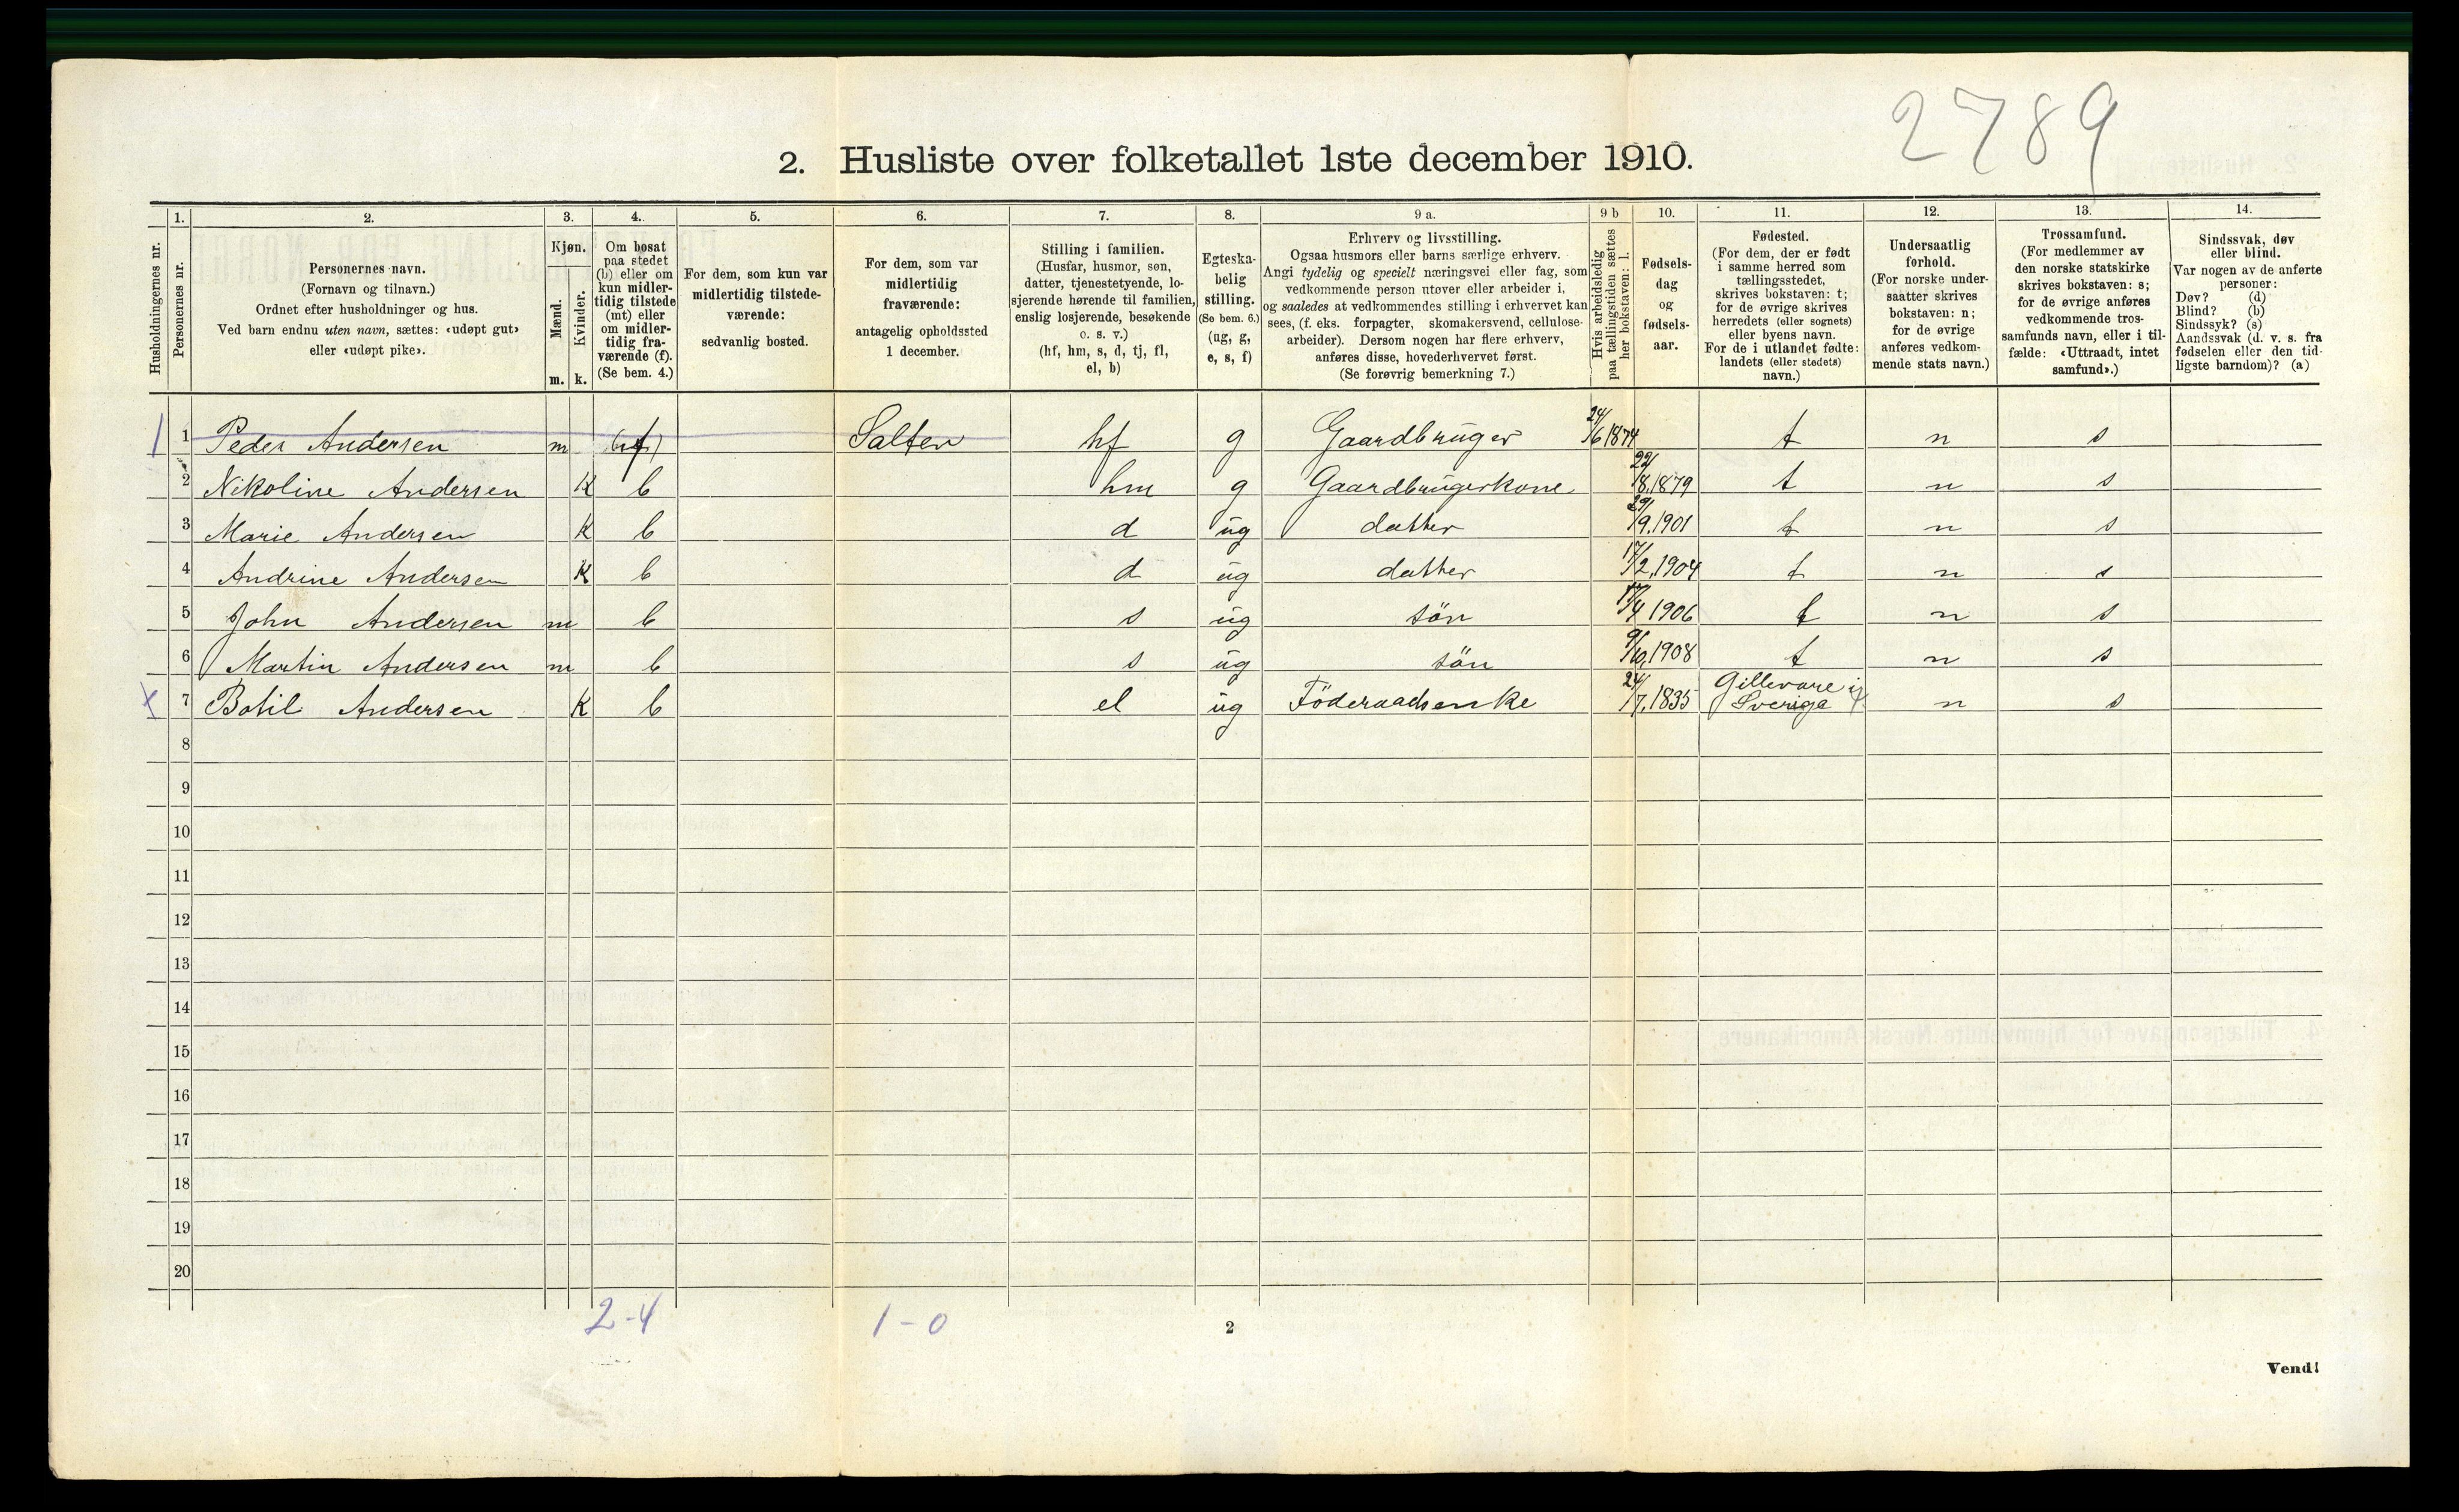 2789
2. Husliste over folketallet 1ste december 1910.
Husholdningernes nr.
1.
Personernes nr.
2.
Personernes navn.
(Fornavn og tilnavn.)
Ordnet efter husholdninger og hus.
Ved barn endnu uten navn, sættes: «udøpt gut»
eller «udøpt pike».
3.
Kjøn.
Mænd.
Kvinder.
m. k.
4.
Om bosat
paa stedet
(b) eller om
kun midler-
tidig tilstede
(mt) eller
om midler-
tidig fra-
værende (f).
(Se bem. 4.)
5.
For dem, som kun var
midlertidig tilstede-
værende:
sedvanlig bosted.
6.
For dem, som var
midlertidig
fraværende:
antagelig opholdssted
1 december.
7.
Stilling i familien.
(Husfar, husmor, søn,
datter, tjenestetyende, lo-
sjerende hørende til familien,
enslig losjerende, besøkende
o. s. v.)
(hf, hm, s, d, tj, fl,
el, b)
8.
Egteska-
belig
stilling.
(Se bem. 6.)
(ug, g,
e, s, f)
9 a.
Erhverv og livsstilling.
Ogsaa husmors eller barns særlige erhverv.
Angi tydelig og specielt næringsvei eller fag, som
vedkommende person utøver eller arbeider i,
og saaledes at vedkommendes stilling i erhvervet kan
sees, (f. eks. forpagter, skomakersvend, cellulose-
arbeider). Dersom nogen har flere erhverv,
anføres disse, hovederhvervet først.
(Se forøvrig bemerkning 7.)
9 b
Hvis arbeidsledig
paa tællingstiden sættes
her bokstaven: l.
10.
Fødsels-
dag
og
fødsels-
aar.
11.
Fødested.
(For dem, der er født
i samme herred som
tællingsstedet,
skrives bokstaven: t;
for de øvrige skrives
herredets (eller sognets)
eller byens navn.
For de i utlandet fødte:
landets (eller stedets)
navn.)
12.
Undersaatlig
forhold.
(For norske under-
saatter skrives
bokstaven: n;
for de øvrige
anføres vedkom-
mende stats navn.)
13.
Trossamfund.
(For medlemmer av
den norske statskirke
skrives bokstaven: s;
for de øvrige anføres
vedkommende tros-
samfunds navn, eller i til-
fælde: «Uttraadt, intet
samfund».)
14.
Sindssvak, døv
eller blind.
Var nogen av de anførte
personer:
Døv? (d)
Blind? (b)
Sindssyk? (s)
Aandssvak (d. v. s. fra
fødselen eller den tid-
ligste barndom)? (a)
1 1 Peder Andersen m f Salten hf g Gaardbruger 24/6 1874 t n s
2 Nikoline Andersen K b hm g Gaardbrugerkone 22/8.1879 t n s
3 Marie Andersen K b d ug datter 29/9.1901 t n s
4 Andrine Andersen K b d ug datter 17/2.1904 t n s
5 John Andersen m b s ug sön 17/4 1906 t n s
6 Martin Andersen m b s ug sön 9/10.1908 t n s
x 7 Botil Andersen K b el ug Föderaadsenke 24/7.1835 Gillevare i Sveriga n s
8
9
10
11
12
13
14
15
16
17
18
19
20
2-4 1-0
2
Vend!